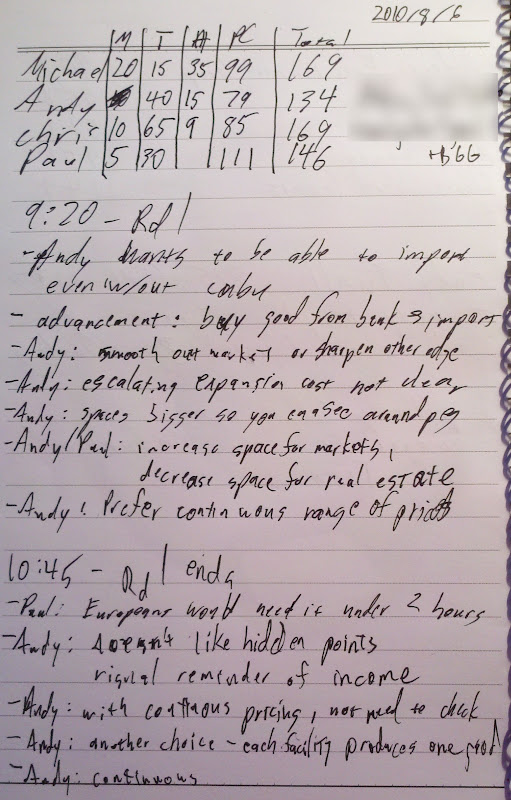 2010/8/6
M T H PC Total
Michael 20 15 35 99 169
Andy 40 15 79 134
Chris 10 65 9 85 169
Paul 5 30 111 146
9:20 - Rd 1
- Andy wants to be able to import
even w/out
- advancement: buy good from bank & import
- Andy: smooth out market or sharpen other edge
- Andy: escalating expansion cost not clear
- Andy: spaces bigger so you can see around peg
- Andy/Paul: increase space for markets,
decrease space for real estate
- Andy: Prefer continuous range of prices
10:45 - Rd 1 ends
- Paul: Europeans would need it under 2 hours
- Andy: doesn't like hidden points
visual reminder of income
- Andy: with contnuous pricing, not need to check
- Andy: another choice - each facility produces one good
- Andy: continuous